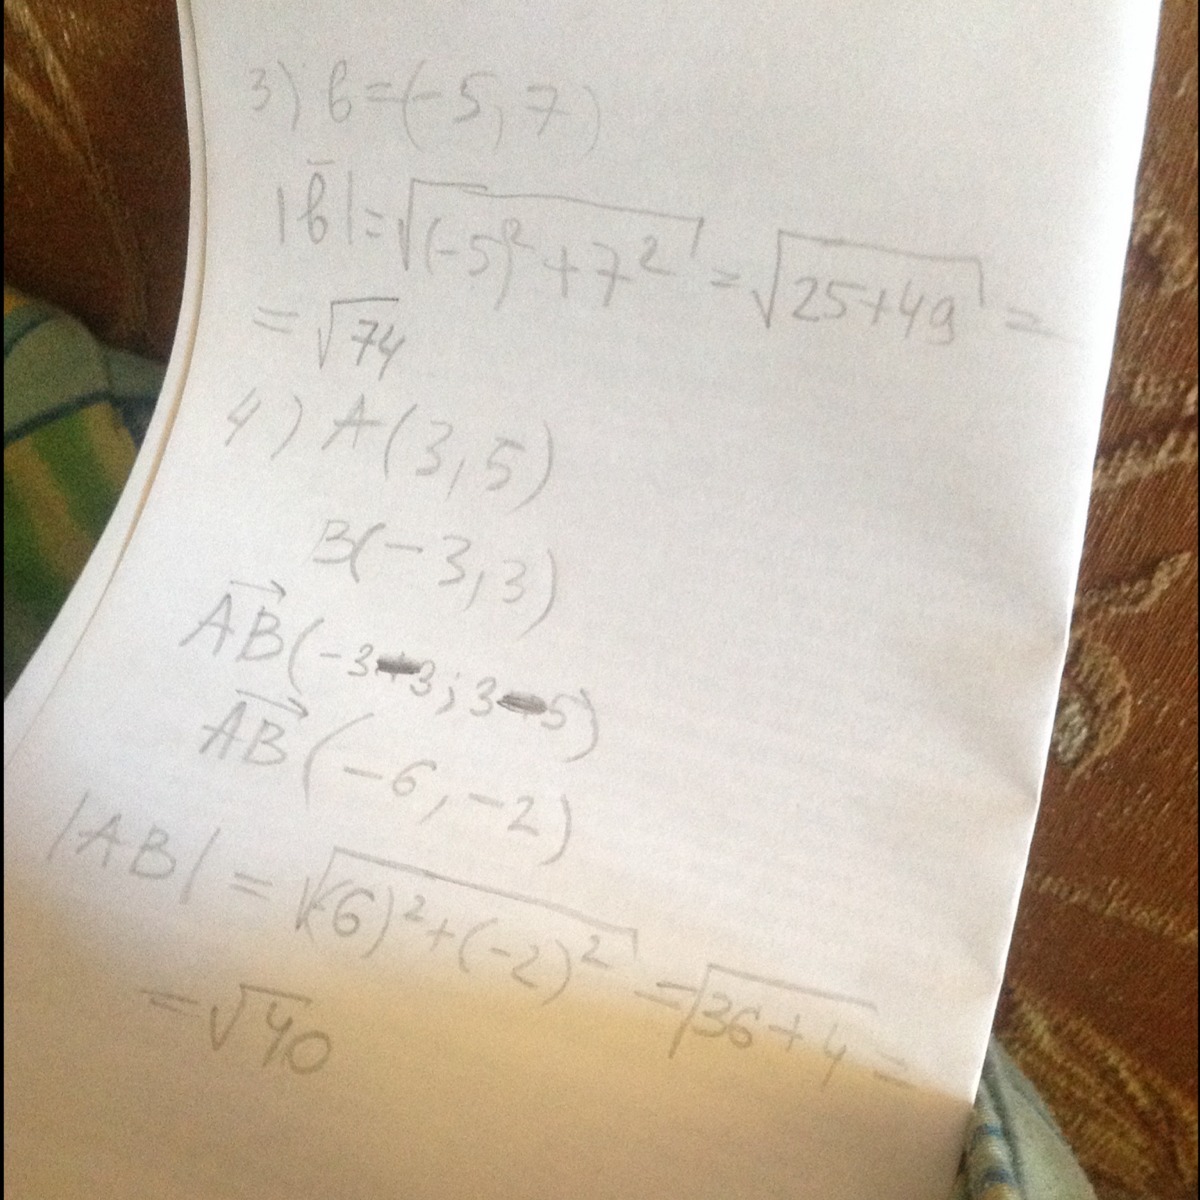 3) b=(-5,7)
|b̅|=√(-5)²+7² = √25+49 =
= √74
4) A(3,5)
B(-3,3)
AB(-3-3; 3-5)
AB(-6,-2)
|AB| = √(-6)²+(-2)² = √36+4 =
= √40